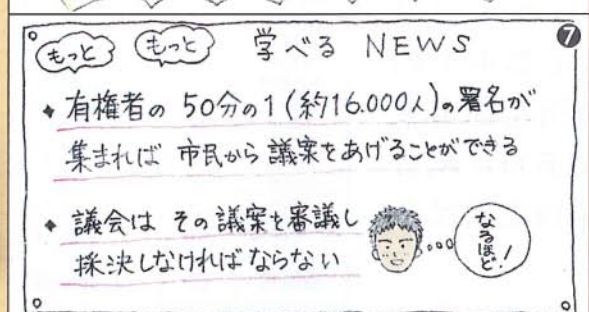 もっと もっと 学べる NEWS
7
◆ 有権者の 50分の1(約16.000人)の署名が
集まれば 市民から 議案をあげることができる
◆ 議会は その議案を審議し
採決しなければならない
なるほど!